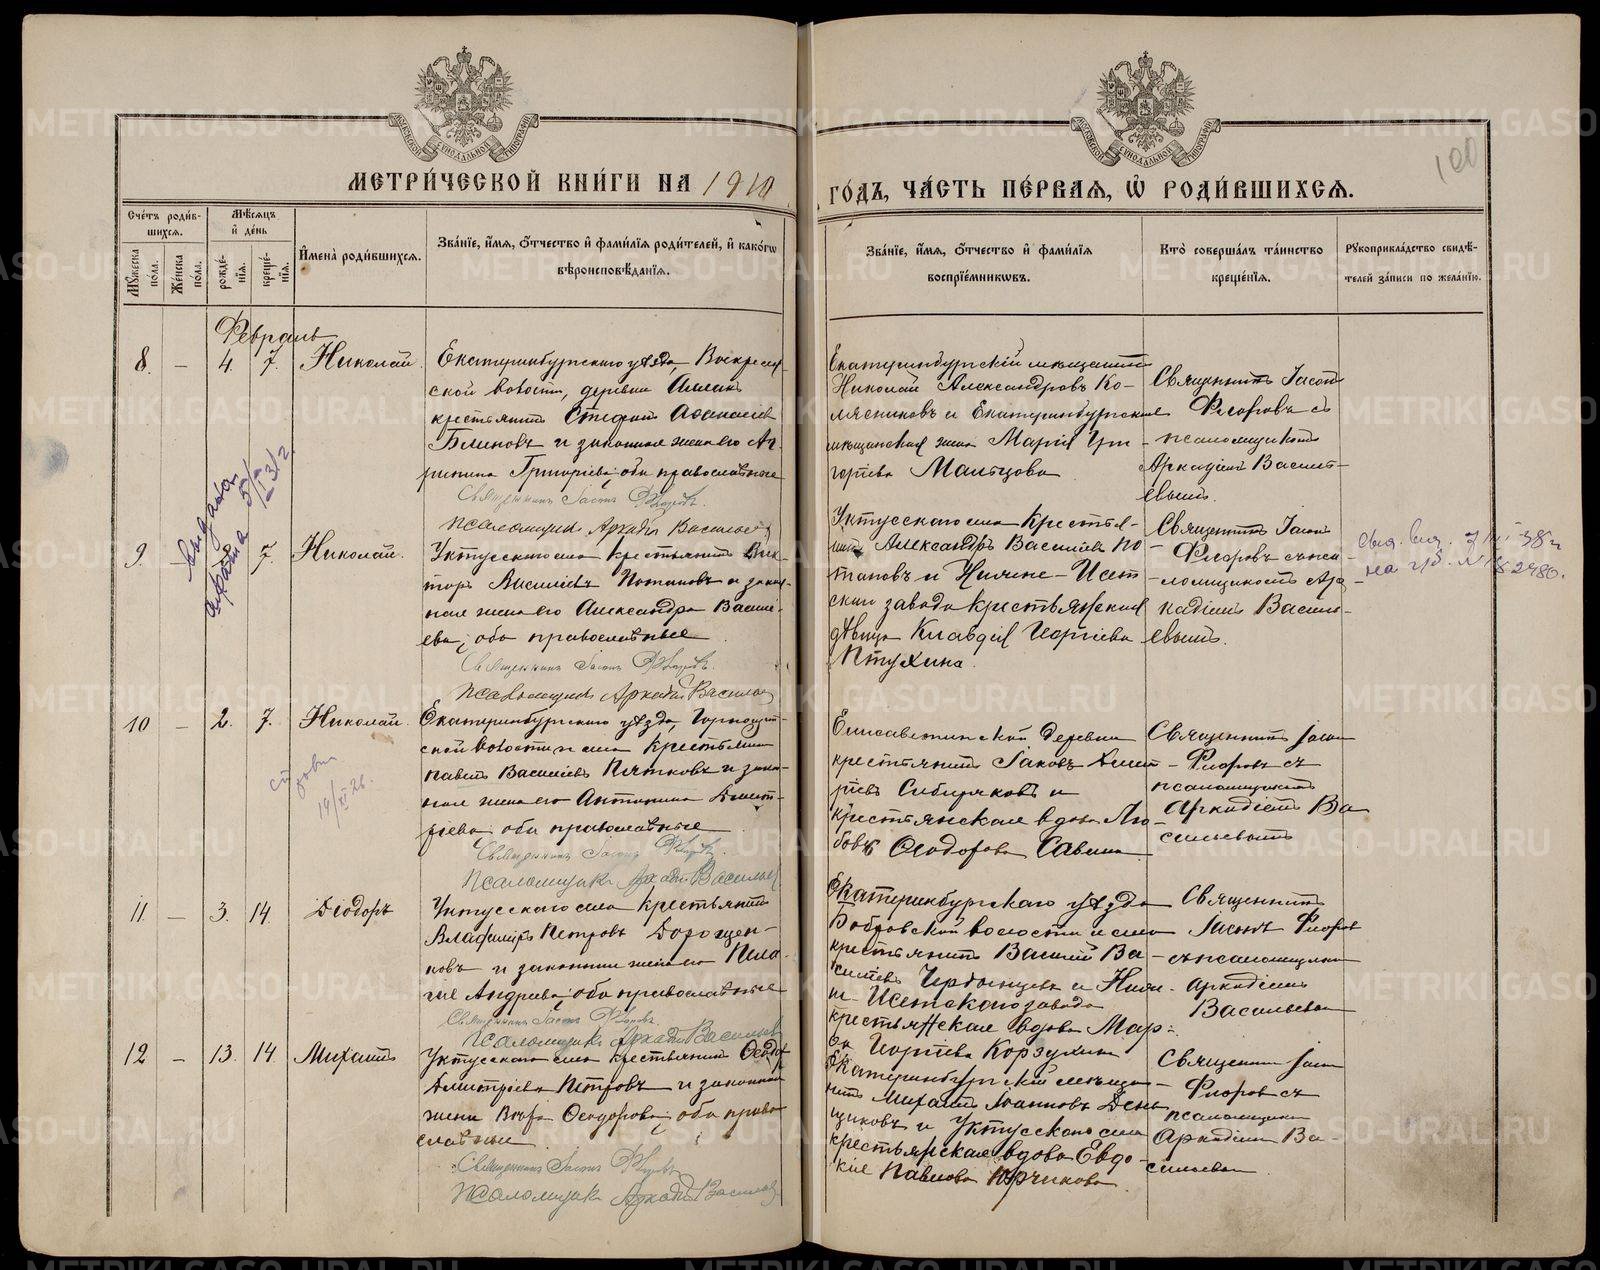 МЕТРИ́ЧЕСКОЙ КНИ́ГИ НА 1910
ГО́ДЪ, ЧА́СТЬ ПЕ́РВАЯ, Ѡ҆ РОДИ́ВШИХСЯ.
100
Сче́тъ роди́в-
шихся.
Мѣ́сяцъ
и҆ де́нь
Му́жеска по́ла.
Же́нска по́ла.
рожде́-
нїя.
креще́-
нїя.
И҆мена̀ роди́вшихся.
Зва́нїе, и҆́мя, ѻ҆́тчество и҆ фами́лїя роди́телей, и҆ како́гѡ
вѣроисповѣ́данїя.
Зва́нїе, и҆́мя, ѻ҆́тчество и҆ фами́лїя
воспрїе́мникѡвъ.
Кто̀ соверша́лъ та́инство
креще́нїя.
Рукоприкла́дство свидѣ́-
телей за́писи по жела́нїю.
Февраль
8. — 4. 7. Николай
Екатеринбургскаго уѣзда, Воскресен-
ской волости, деревни
крестьянинъ Стефанъ Аѳанасіевъ
Блиновъ и законная жена его Аг-
рипина Григоріева; оба православные
Священникъ Іасонъ Флоровъ.
Псаломщикъ Аркадій Васильевъ
Екатеринбургскій мѣщанинъ
Николай Александровъ Ко-
лясниковъ и Екатеринбургская
мѣщанская жена Марія Гри-
горіева Мальцова
Священникъ Іасонъ
Флоровъ съ
псаломщикомъ
Аркадіемъ Василь-
евымъ.
9. 7. Николай.
Уктусскаго села крестьянинъ Вик-
торъ Василіевъ Потаповъ и закон-
ная жена его Александра Василі-
ева; оба православные
Священникъ Іасонъ Флоровъ.
Псаломщикъ Аркадій Васильевъ
Уктусскаго села крестья-
нинъ Александръ Василіевъ По-
таповъ и Нижне-Исет-
скаго завода крестьянская
дѣвица Клавдія Георгіева
Птухина.
Священникъ Іасонъ
Флоровъ съ пса-
ломщикомъ Арк-
кадіемъ Василь-
евымъ.
выдана
справка
10 — 2. 7. Николай.
Екатеринбургскаго уѣзда, Горнощит-
ской волости и села крестьянинъ
Павелъ Василіевъ Пятковъ и закон-
ная жена его Антонина Димит-
ріева; оба православные
Священникъ Іасонъ Флоровъ.
Псаломщикъ Аркадій Васильевъ
Елисаветинской деревни
крестьянинъ Іаковъ Димит-
ріевъ Сибиряковъ и
крестьянская вдова Лю-
бовь Ѳеодорова Савина.
Священникъ Іасонъ
Флоровъ съ
псаломщикомъ
Аркадіемъ Ва-
сильевымъ
11. — 3. 14. Ѳеодоръ
Уктусскаго села крестьянинъ
Владиміръ Петровъ Дорощен-
ковъ и законная жена его Пела-
гія Андреева; оба православные
Священникъ Іасонъ Флоровъ.
Псаломщикъ Аркадій Васильевъ
Екатеринбургскаго уѣзда
Бобровской волости и села
крестьянинъ Василій Ва-
силіевъ Чердынцевъ и Ниж-
не-Исетскаго завода
крестьянская вдова Мар-
ѳа Георгіева Корзухина
Священникъ
Іасонъ Флоровъ
съ псаломщикомъ
Аркадіемъ
Васильевымъ
12 — 13. 14. Михаилъ
Уктусскаго села крестьянинъ Ѳеодоръ
Димитріевъ Петровъ и законная
жена Вѣра Ѳеодорова; оба право-
славные
Священникъ Іасонъ Флоровъ
Псаломщикъ Аркадій Васильевъ
Екатеринбургскій мѣща-
нинъ Михаилъ Іоанновъ День-
щиковъ и Уктусскаго села
крестьянская вдова Евдо-
кія Павлова
Священникъ Іасонъ
Флоровъ съ
псаломщикомъ
Аркадіемъ Ва-
сильевымъ
METRIKI.GASO-URAL.RU